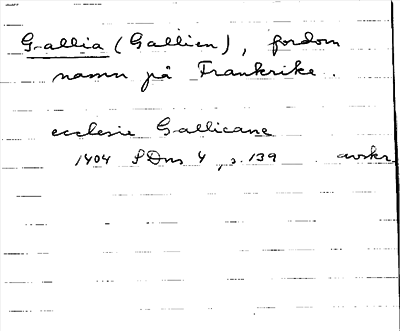 Gallia (Gallien), fordom
namn på Frankrike.
ecclesie Gallicane
1404 SDns 4, s. 139 avskr.